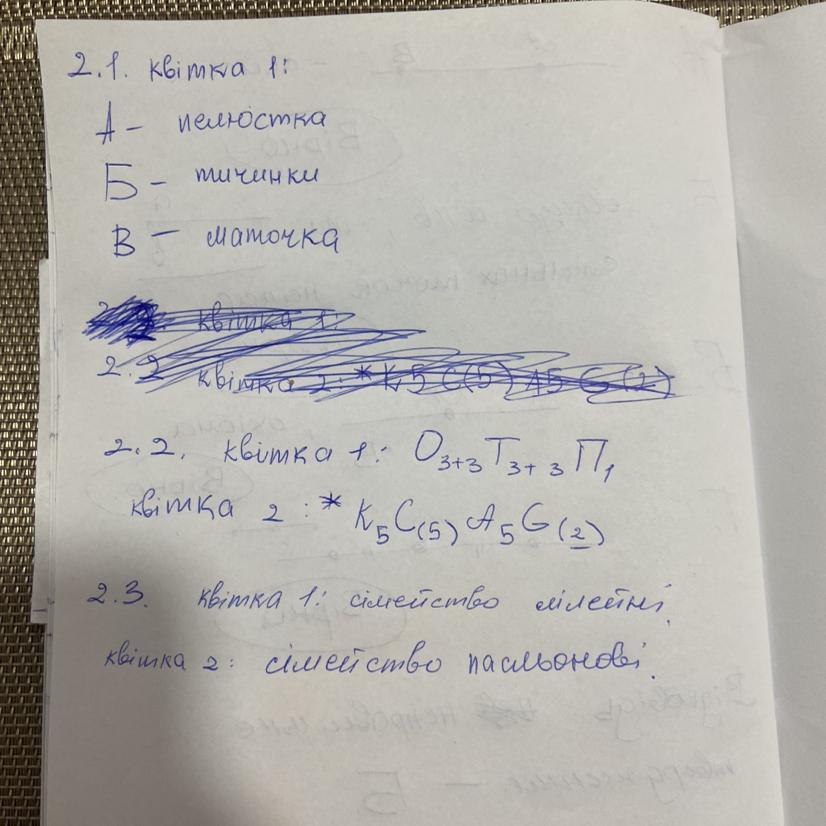 2.1. квітка 1:
А – пелюстка
Б – тичинки
В – маточка
квітка 1:
2.2 квітка 2: * К 5 С(5) А5 G(2)
2.2. квітка 1: О3+3Т3+3П1
квітка 2 : * К5С(5)А5G(2)
2.3. квітка 1: сімейство лілейні,
квітка 2: сімейство пасльонові.